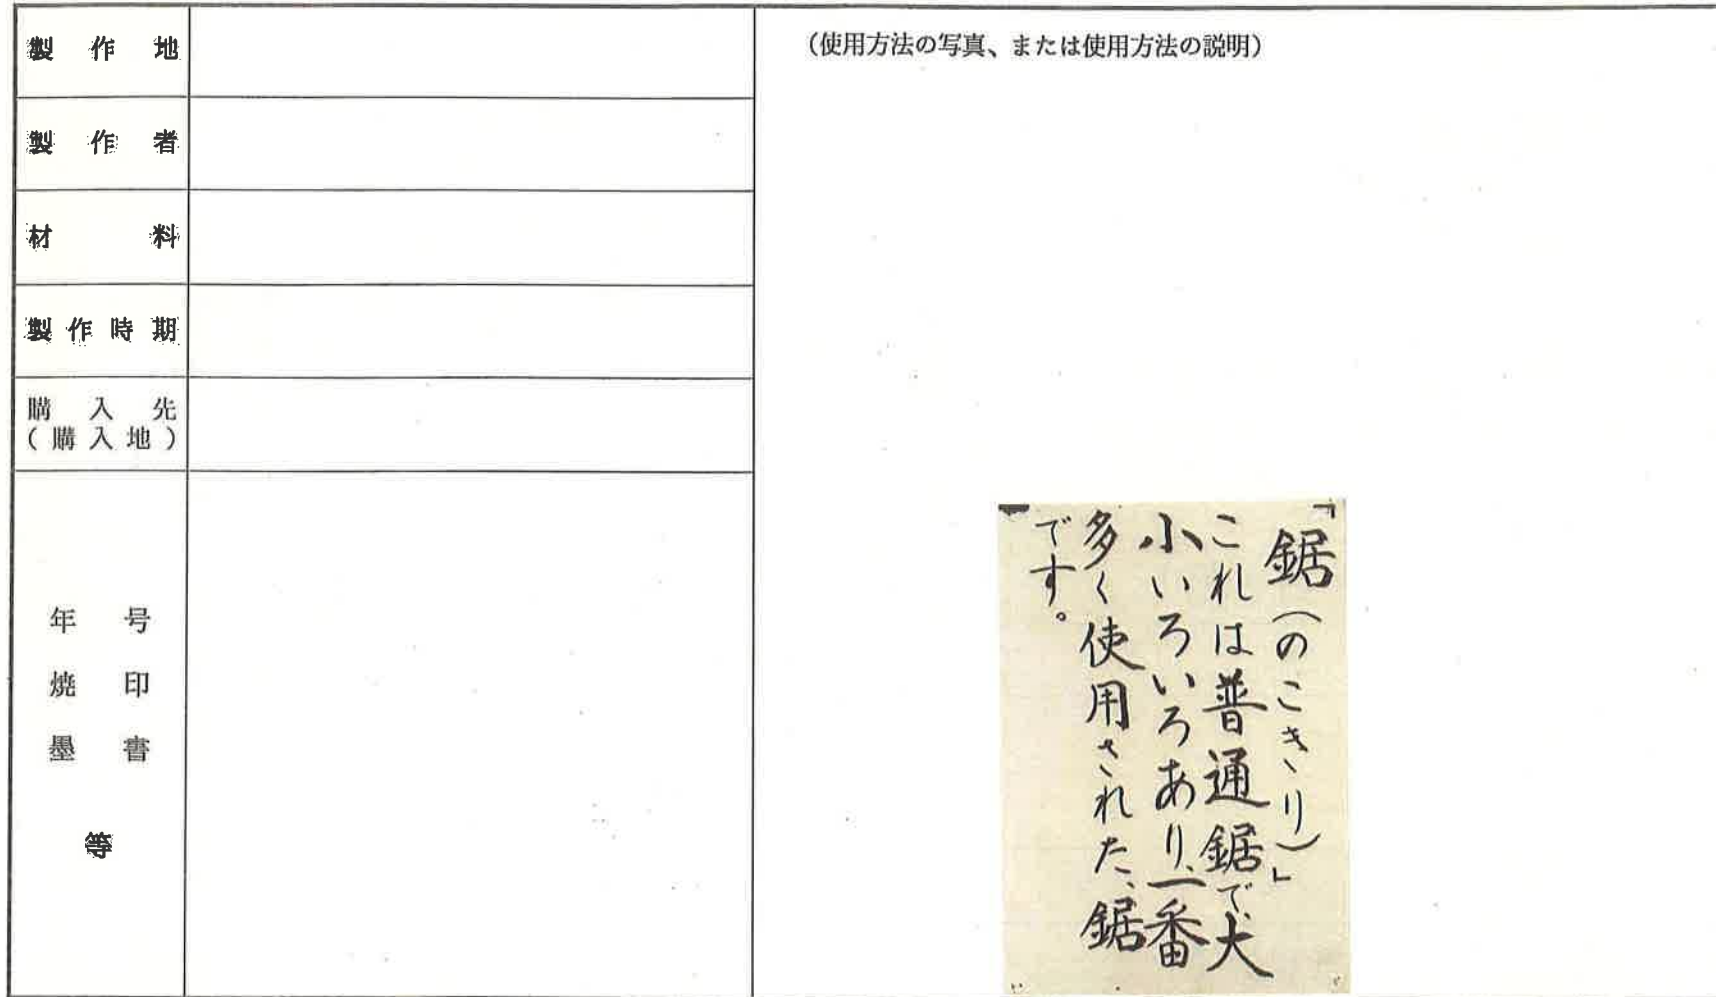 製作地
製作者
材料
製作時期
購入先
(購入地)
年号
焼印
墨書
等
(使用方法の写真、または使用方法の説明)
「鋸(のこきり)」
これは普通鋸で、大
小いろいろあり、一番
多く使用された、鋸
です。